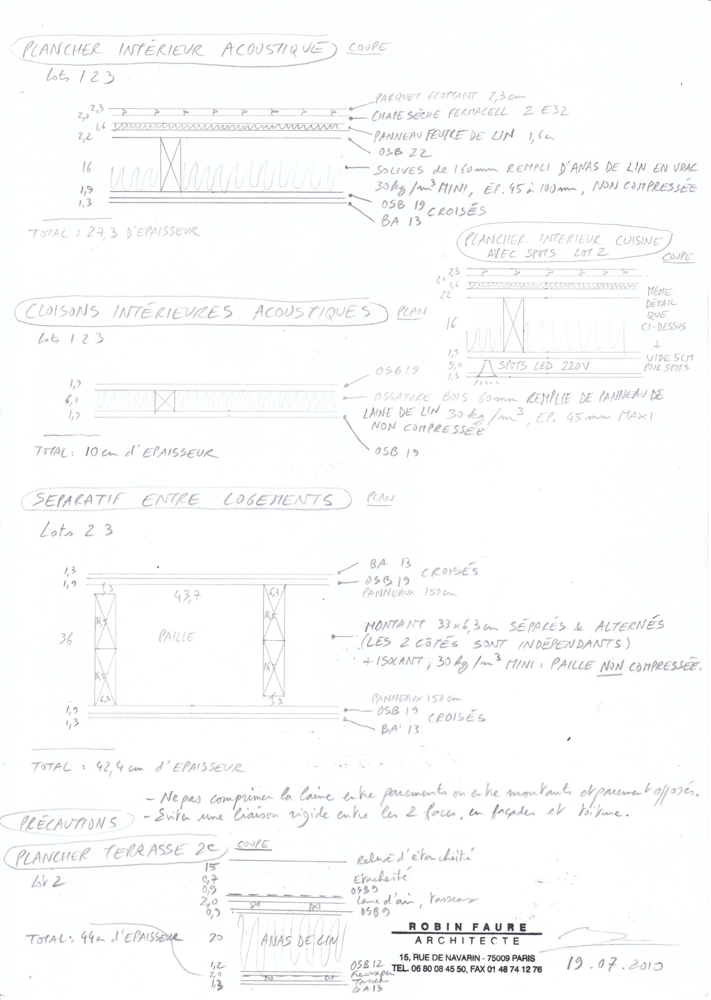 PLANCHER INTÉRIEUR ACOUSTIQUE COUPE
Lots 1 2 3
2,3
2,0
1,6
2,2
16
1,9
1,3
PARQUET FLOTTANT 2,3cm
CHAPE SÈCHE FERMACELL 2 E32
PANNEAU FEUTRE DE LIN 1,6cm
OSB 22
SOLIVES de 160mm REMPLI D'ANAS DE LIN EN VRAC
30kg/m³ MINI, EP. 45 à 100mm, NON COMPRESSÉE
OSB 19 CROISÉS
BA 13
TOTAL : 27,3 D'EPAISSEUR
PLANCHER INTERIEUR CUISINE
AVEC SPOTS LOT 2
COUPE
2,3
2,0
1,6
2,2
16
1,9
5,0
1,3
SPOTS LED 220V
MÊME
DÉTAIL
QUE
CI-DESSUS
+
VIDE 5CM
POUR SPOTS
CLOISONS INTÉRIEURES ACOUSTIQUES PLAN
Lots 1 2 3
1,9
6,0
1,9
OSB 19
OSSATURE BOIS 60mm REMPLIE DE PANNEAU DE
LAINE DE LIN 30kg/m³, EP. 45mm MAXI
NON COMPRESSÉE
OSB 19
TOTAL : 10cm d'EPAISSEUR
SEPARATIF ENTRE LOGEMENTS PLAN
Lots 2 3
1,3
1,9
36
1,9
1,3
6,3
43,7
6,3
16,5
16,5
PAILLE
16,5
16,5
6,3
6,3
BA 13 CROISÉS
OSB 19
PANNEAUX 150cm
MONTANT 33x6,3cm SÉPARÉS & ALTERNÉS
(LES 2 CÔTÉS SONT INDÉPENDANTS)
+ ISOLANT, 30kg/m³ MINI : PAILLE NON COMPRESSÉE.
PANNEAUX 150cm
OSB 19 CROISÉS
BA 13
TOTAL : 42,4cm d'EPAISSEUR
- Ne pas comprimer la laine entre parements ou entre montants et parement opposés.
PRÉCAUTIONS - Eviter une liaison rigide entre les 2 faces, en façades et toiture.
PLANCHER TERRASSE 2e COUPE
Lot 2
15
0,7
0,9
2,0
0,9
20
1,2
2,0
1,3
Relevé d'étanchéité
Etachéité
OSB 9
Lame d'air, tasseaux
OSB 9
ANAS DE LIN
OSB 12
BA 13
TOTAL : 44cm d'EPAISSEUR
ROBIN FAURE
ARCHITECTE
15, RUE DE NAVARIN - 75009 PARIS
TEL. 06 80 08 45 50, FAX 01 48 74 12 76
19.07.2010